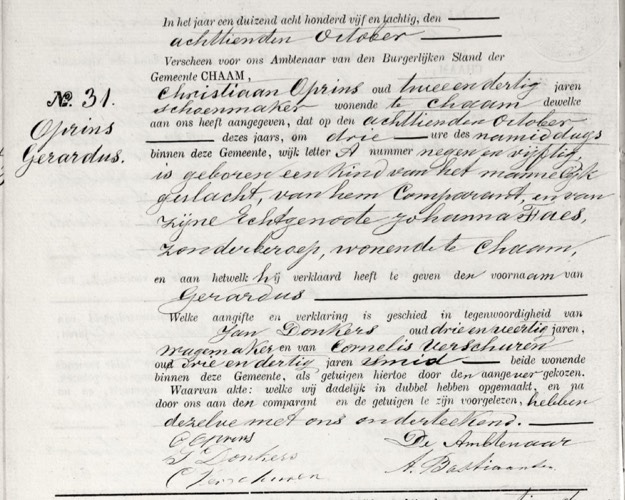 In het jaar een duizend acht honderd vijf en tachtig, den
achttienden October
Verscheen voor ons Ambtenaar van den Burgerlijken Stand der
Gemeente CHAAM,
No. 31.
Oprins
Gerardus.
Christiaan Oprins oud twee en dertig jaren
schoenmaker wonende te Chaam dewelke
aan ons heeft aangegeven, dat op den achttienden October
dezes jaars, om drie ure des namiddags
binnen deze Gemeente, wijk letter A nummer negen en vijftig,
is geboren een kind van het mannelijk
geslacht, van hem Comparant, en van
zijne Echtgenoote Johanna Faes,
zonder beroep, wonende te Chaam,
en aan hetwelk hij verklaard heeft te geven den voornaam van
Gerardus
Welke aangifte en verklaring is geschied in tegenwoordigheid van
Jan Donkers oud drie en veertig jaren,
wagemaker en van Cornelis Verschuren
oud drie en dertig jaren smid beide wonende
binnen deze Gemeente, als getuigen hiertoe door den aangever gekozen.
Waarvan akte: welke wij dadelijk in dubbel hebben opgemaakt, en na
door ons aan den comparant en de getuigen te zijn voorgelezen, hebben
dezelve met ons onderteekend.
C Oprins
J. Donkers
C Verschuren
De Ambtenaar